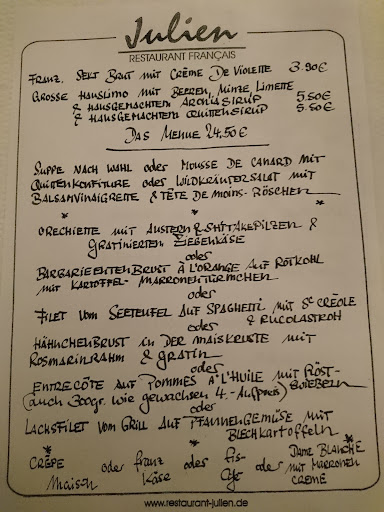 Julien
RESTAURANT FRANÇAIS
FRANZ. SEKT BRUT MIT CRÈME DE VIOLETTE 3.90€
GROSSE HAUSLIMO MIT BEEREN, MINZE, LIMETTE
& HAUSGEMACHTEM ARONIASIRUP 5.50€
& HAUSGEMACHTEM QUITTENSIRUP 5.50€
DAS MENUE 24,50€
SUPPE NACH WAHL oder MOUSSE DE CANARD MIT
QUITTENKONFITURE oder WILDKRÄUTERSALAT MIT
BALSAMVINAIGRETTE & TÊTE DE MOINS-RÖSCHEN
* * *
ORECHIETTE MIT AUSTERN & SHITAKEPILZEN &
GRATINIERTEM ZIEGENKÄSE
oder
BARBARIEENTENBRUST À L'ORANGE AUF ROTKOHL
MIT KARTOFFEL-MARRONENTÜRMCHEN
oder
FILET VOM SEETEUFEL AUF SPAGHETTI MIT SC CRÉOLE
oder & RUCOLASTROH
HÄHNCHENBRUST IN DER MAISKRUSTE MIT
ROSMARINRAHM & GRATIN
oder
ENTRECÔTE AUF POMMES À L'HUILE MIT RÖST-
(auch 300gr. wie gewachsen 4.-Aufpreis) ZWIEBELN
oder
LACHSFILET VOM GRILL AUF PFANNENGEMÜSE MIT
BLECHKARTOFFELN
* * *
CRÊPE oder franz oder Eis- oder DAME BLANCHE
Maison Käse Café MIT MARRONEN
CREME
www.restaurant-julien.de